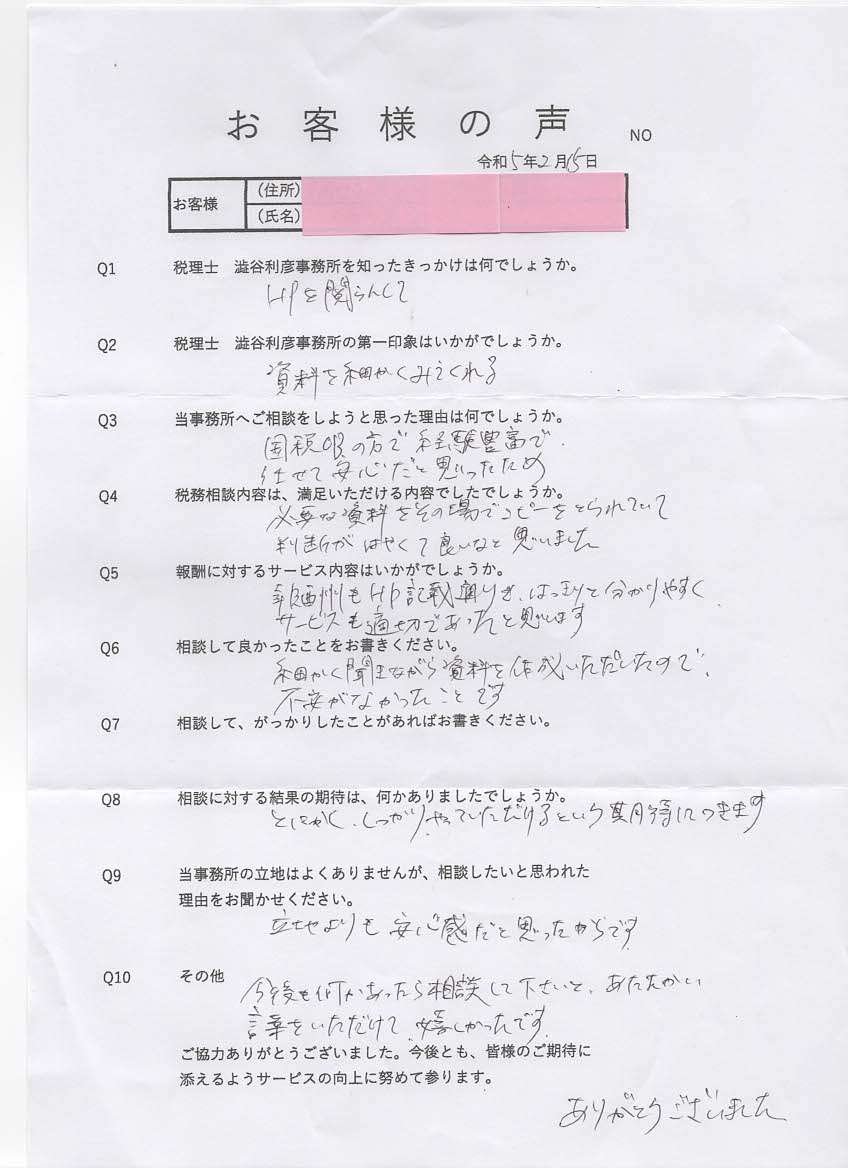 お客様の声
NO
令和5年2月15日
お客様
(住所)
(氏名)
Q1 税理士 澁谷利彦事務所を知ったきっかけは何でしょうか。
HPを閲らんして
Q2 税理士 澁谷利彦事務所の第一印象はいかがでしょうか。
資料を細かくみてくれる
Q3 当事務所へご相談をしようと思った理由は何でしょうか。
国税OBの方で経験豊富で、
任せて安心だと思ったため
Q4 税務相談内容は、満足いただける内容でしたでしょうか。
必要な資料をその場でコピーをとられていて
判断がはやくて良いなと思いました
Q5 報酬に対するサービス内容はいかがでしょうか。
報酬もHP記載通りで、はっきりと分かりやすく、
サービスも適切であったと思います
Q6 相談して良かったことをお書きください。
細かく聞きながら資料を作成いただいたので、
不安がなかったことです
Q7 相談して、がっかりしたことがあればお書きください。
Q8 相談に対する結果の期待は、何かありましたでしょうか。
とにかく、しっかりやっていただけるという期待につきます
Q9 当事務所の立地はよくありませんが、相談したいと思われた
理由をお聞かせください。
立地よりも安心感だと思ったからです
Q10 その他
今後も何かあったら相談して下さいと、あたたかい
言葉をいただけて、嬉しかったです
ご協力ありがとうございました。今後とも、皆様のご期待に
添えるようサービスの向上に努めて参ります。
ありがとうございました